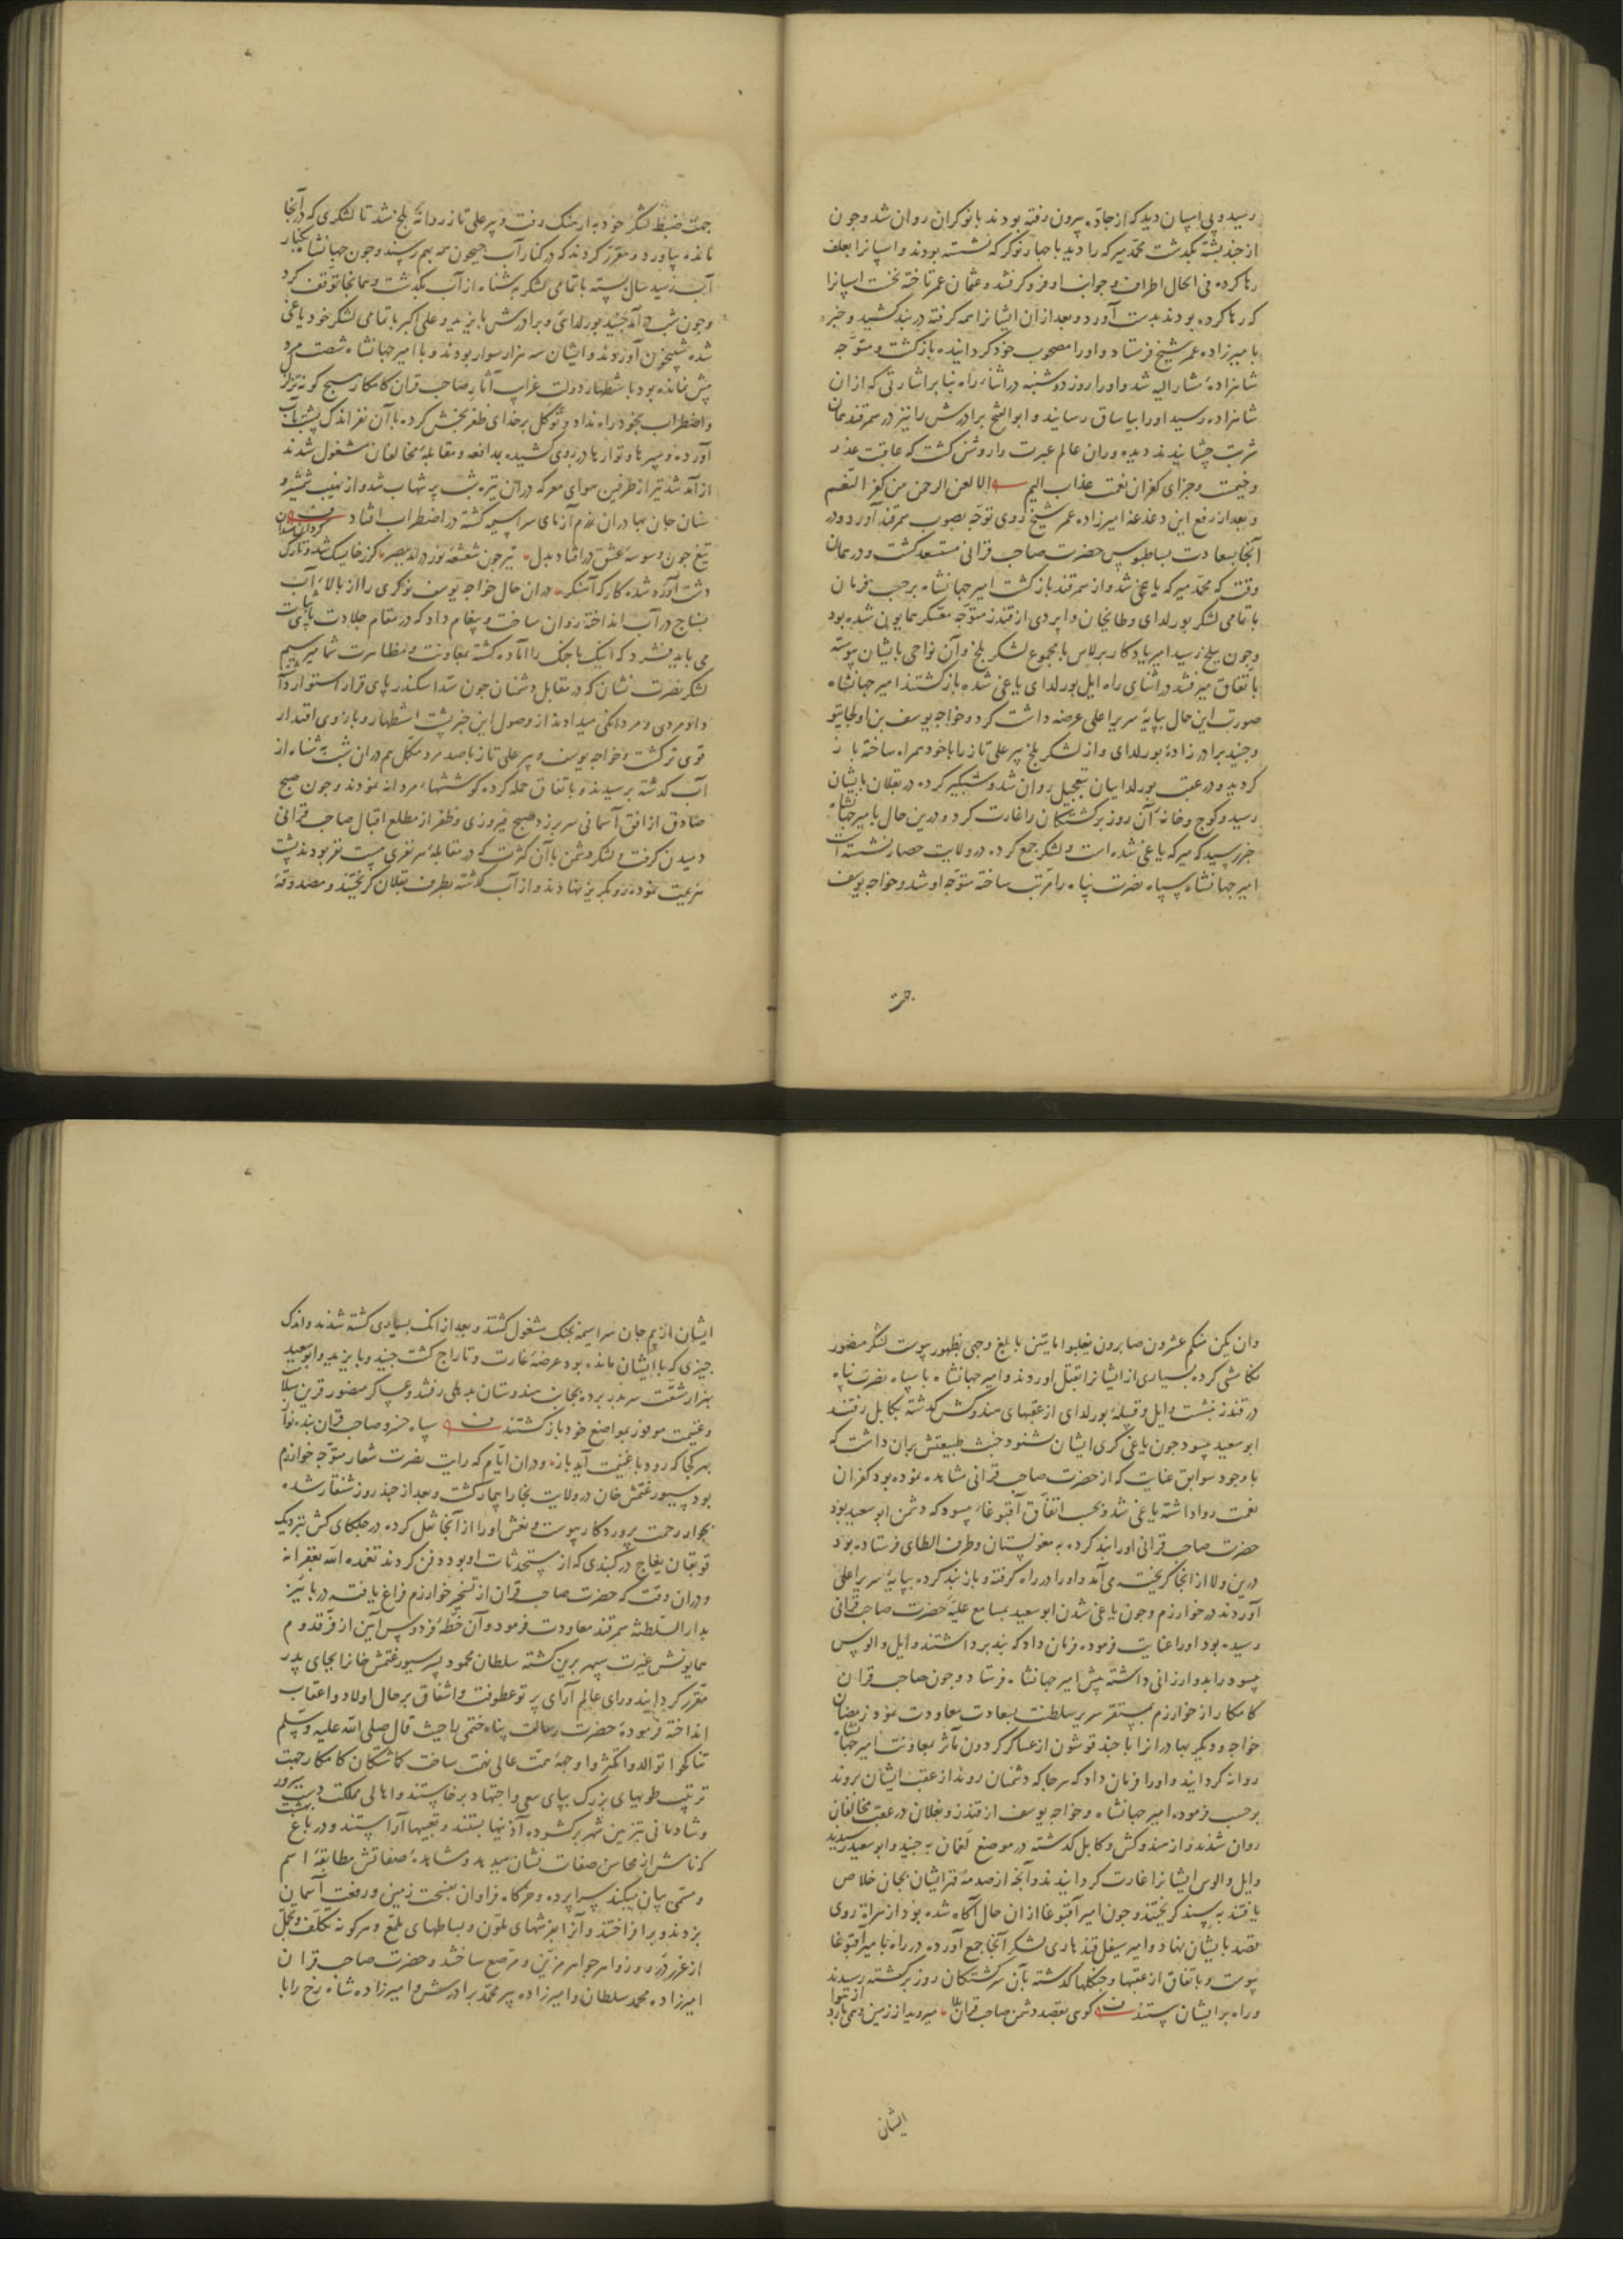 رسید و پی اسپان دید که از جاده بیرون رفته بودند با نوکران روان شد و چون
از چند پشته بگذشت محمد میرکه را دید با چهار نوکر که نشسته بودند و اسپانرا بعلف
رها کرده فی الحال اطراف و جوانب او فرو گرفتند و عثمان عمر تاخته نخست اسپانرا
که رها کرده بودند بدست آورد و بعد از آن ایشانرا همه گرفته در بند کشید و خبر
بامیرزاده عمر شیخ فرستاد و اورا مصحوب خود گردانیده بازگشت و متوجه
شاهزادهٔ مشار الیه شد و اورا روز دوشنبه در اثناء راه بنا بر اشارتی که از آن
شاهزاده رسید اورا بیاساق رسانیدند و ابو الفتح برادرش را نیز در سمرقند همان
شربت چشانیدند و بر دیده وران عالم عبرت را روشن گشت که عاقبت غدر
وخیمست و جزای کفران نعمت عذاب الیم الا لعن الرحمن من کفر النعم
و بعد از رفع این دغدغه امیرزاده عمر شیخ روی توجه بصوب سمرقند آورد و در
آنجا بسعادت بساط بوس حضرت صاحب قرانی مستسعد گشت و در همان
وقت که محمد میرکه یاغی شد و از سمرقند بازگشت امیر جهانشاه برحسب فرمان
با تمامی لشکر بورلدای و طایخان و اپردی از قندز متوجه معسکر همایون شده بود
و چون ببلخ رسید امیر یادکار برلاس با مجموع لشکر بلخ و آن نواحی بایشان پیوسته
باتفاق میرفتند در اثنای راه ایل بورلدای یاغی شده بازگشتند امیر جهانشاه
صورت این حال بپایهٔ سریر اعلی عرضه داشت کرد و خواجه یوسف بن اولجایتو
و جنید برادر زادهٔ بورلدای و از لشکر بلخ پیر علی تاز را با خود همراه ساخته باز
گردید و در عقب بورلداییان بتعجیل روان شد و شبگیر کرده در بقلان بایشان
رسید و کوچ و خانهٔ آن روز برگشتگان را غارت کرد و درین حال بامیر جهانشاه
خبر رسید که میرکه یاغی شده است و لشکر جمع کرده در ولایت حصار نشسته است
امیر جهانشاه سپاه نصرت پناه را مرتب ساخته متوجه او شد و خواجه یوسف
جهت
جهت ضبط لشکر خود به ارهنک رفت و پیر علی تاز روانهٔ بلخ شد تا لشکری که در آنجا
مانده بیاورد و مقرر کردند که در کنار آب جیحون همه بهم رسند و چون جهانشاه بکنار
آب رسید سال بسته با تمامی لشکر بشناه از آب بگذشت و همانجا توقف کرد
و چون شب در آمد جنید بورلدای و برادرش بایزید و علی اکبر با تمامی لشکر خود یاغی
شده شبیخون آوردند و ایشان سه هزار سوار بودند و با امیر جهانشاه شصت مرد
پیش نمانده بود باستظهار دولت غرایب آثار صاحب قران کامکار هیچ گونه تزلزل
و اضطراب بخود راه نداد و توکل بر خدای ظفر بخش کرده با آن نفر اندک پشت بآب
آورده و سپرها و توارها در روی کشیده بمدافعه و مقابلهٔ مخالفان مشغول شدند
از آمد شد تیر از طرفین هوای معرکه در آن تیره شب پر شهاب شد و از نهیب شمشیر و
سنان جان بهادران رزم آزمای سراسیمه گشته در اضطراب افتاد
تیغ چون وسوسهٔ عشق در افتاد بدل تیر چون شعشعهٔ نور در آمد ببصر گرز خایسک شد و تارک
گردان سندان
دشت آورد شده کارکه آهنکر در آن حال خواجه یوسف نوکری را از بالاء آب
بسناج در آب انداخته روان ساخت و پیغام داد که در مقام جلادت پای ثبات
می باید فشرد که اینک ما جنگ را آماده گشته بمعاونت و مظاهرت شما میرسیم
لشکر نصرت نشان که در مقابل دشمنان چون سد اسکندر پای قرار استوار داشته
داد مردی و مردانگی میدادند از وصول این خبر پشت استظهار و بازوی اقتدار
قوی تر گشت و خواجه یوسف و پیر علی تاز با صد مرد مکمل هم در آن شب بشناه از
آب گذشته برسیدند و باتفاق حمله کرده کوششهاء مردانه نمودند و چون صبح
صادق از افق آسمانی سر بر زد صبح فیروزی و ظفر از مطلع اقبال صاحب قرانی
دمیدن گرفت و لشکر دشمن با آن کثرت که در مقابلهٔ هر نفری بیست نفر بودند پشت
هزیمت نموده رو بگریز نهادند و از آب گذشته بطرف بقلان گریختند و مصدوقهٔ
وان یکن منکم عشرون صابرون یغلبوا مایتین بابلغ وجهی بظهور پیوست لشکر منصور
تکامشی کرده بسیاری از ایشانرا بقتل آوردند و امیر جهانشاه با سپاه نصرت پناه
در قندز بنشست و ایل و قبیلهٔ بورلدای از عقبهای هندوکش گذشته بکابل رفتند
ابو سعید یسود چون یاغی گری ایشان شنود خبث طبیعتش بر آن داشت که
با وجود سوابق عنایت که از حضرت صاحب قرانی مشاهده نموده بود کفران
نعمت روا داشته یاغی شد و بحسب اتفاق آقبوغاء یسود که دشمن ابو سعید بود
حضرت صاحب قرانی اورا بند کرده به مغولستان و طرف الطای فرستاده بود
درین ولا از آنجا گریخته می آمد و اورا در راه گرفته و باز بند کرده بپایهٔ سریر اعلی
آوردند در خوارزم و چون یاغی شدن ابو سعید بمسامع علیهٔ حضرت صاحب قرانی
رسیده بود اورا عنایت فرموده فرمان داد که بند برداشتند و ایل و الوس
یسود را بدو ارزانی داشته پیش امیر جهانشاه فرستاد و چون صاحب قران
کامکار از خوارزم بمستقر سریر سلطنت بسعادت معاودت نمود رمضان
خواجه و دیگر بهادرانرا با چند قوشون از عساکر گردون مآثر بمعاونت امیر جهانشاه
روانه گردانید و اورا فرمان داد که هر جا که دشمنان روند از عقب ایشان بروند
برحسب فرموده امیر جهانشاه و خواجه یوسف از قندز و بغلان در عقب مخالفان
روان شدند و از هندوکش و کابل گذشته در موضع لمغان به جنید و ابو سعید رسیدند
و ایل و الوس ایشانرا غارت گردانیدند و آنچه از صدمهٔ قهر ایشان بجان خلاص
یافتند به سند گریختند و چون امیر آقبوغا از آن حال آگاه شده بود از هراة روی
قصد بایشان نهاد و امیر سیفل قندهاری لشکر آنجا جمع آورده در راه بامیر آقبوغا
پیوست و باتفاق از عقبها و جنگلها گذشته بآن سرگشتگان روز برگشته رسیدند
و راه بر ایشان بستند گوی بقصد دشمن صاحب قران بلا میروید از زمین و همی بارد
از هوا
ایشان
ایشان از بیم جان سراسیمه بجنگ مشغول گشتند و بعد از آنک بسیاری کشته شدند و اندک
چیزی که با ایشان مانده بود عرضهٔ غارت و تاراج گشت جنید و بایزید و ابو سعید
بهزار مشقت سر بدر برده بجانب هندوستان بدهلی رفتند و عساکر منصور قرین سلامت
و غنیمت موفور بمواضع خود بازگشتند سپاه خسرو صاحب قران بنده نواز
بهر کجا که رود با غنیمت آید باز و در آن ایام که رایت نصرت شعار متوجه خوارزم
بود سیورغتمش خان در ولایت بخارا بیمار گشت و بعد از چند روز شنقار شده
بجوار رحمت پروردگار پیوست و نعش اورا از آنجا نقل کرده در جلکای کش نزدیک
قوتقان یغاج در گنبدی که از مستحدثات او بود دفن کردند تغمده الله بغفرانه
و در آن وقت که حضرت صاحب قران از تسخیر خوارزم فراغ یافت در پائیز
بدار السلطنه سمرقند معاودت فرمود و آن خطهٔ فردوس آیین از فر قدوم
همایونش غیرت سپهر برین گشته سلطان محمود پسر سیورغتمش خانرا بجای پدر
مقرر گردانید و رای عالم آرای پرتو عطوفت و اشفاق بر حال اولاد و اعقاب
انداخته فرمودهٔ حضرت رسالت پناه ختمی را حیث قال صلی الله علیه وسلم
تناکحوا توالدوا تکثروا وجههٔ همت عالی نهمت ساخت گماشتگان کامکار جهت
ترتیب طویهای بزرگ بپای سعی و اجتهاد برخاستند و اهالی مملکت دست سرور
و شادمانی بتزیین شهر برگشوده آذینها بستند و تعبیها آراستند و در باغ بهشت
که نامش از محاسن صفات نشان میدهد و مشاهدهٔ صفاتش مطابقهٔ اسم
و مسمی بیان میکند سراپرده و خرگاه فراوان بفسحت زمین و رفعت آسمان
بزدند و برافراختند و آنرا بفرشهای ملون و بساطهای ملمع و هر گونه تکلف و تجمل
از غرر درر و زواهر جواهر مزین و مرصع ساختند و حضرت صاحب قران
امیرزاده محمد سلطان و امیرزاده پیر محمد برادرش و امیرزاده شاه رخ را با